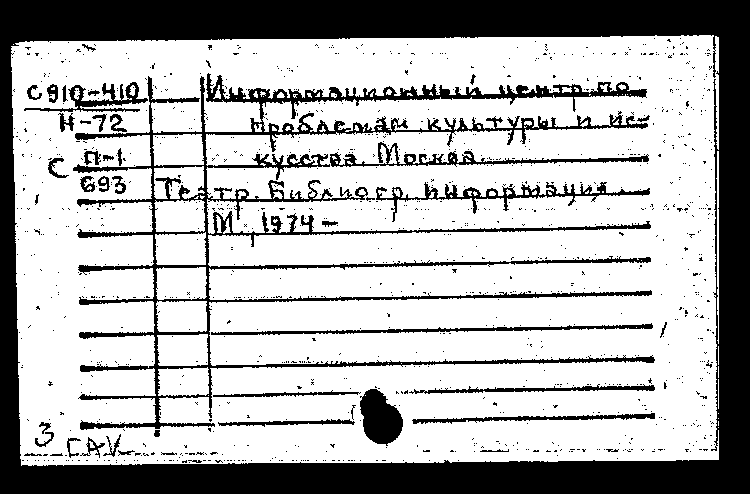 С910-410 Информационный центр по
Н-72 проблемам культуры и ис-
С П-1 кусства. Москва.
693 Театр. Библиогр. информация.
М., 1974 -
3 ГАК